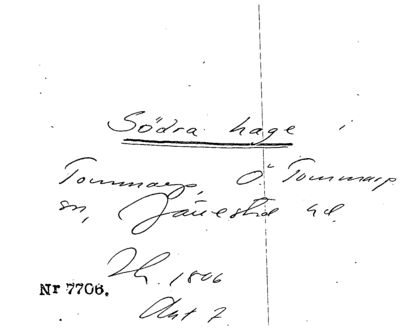 Södra hage i
Tommarp, Ö Tommarp
sn, Järrestad hd.
Sk. 1806
Nr 7706.
Akt 7